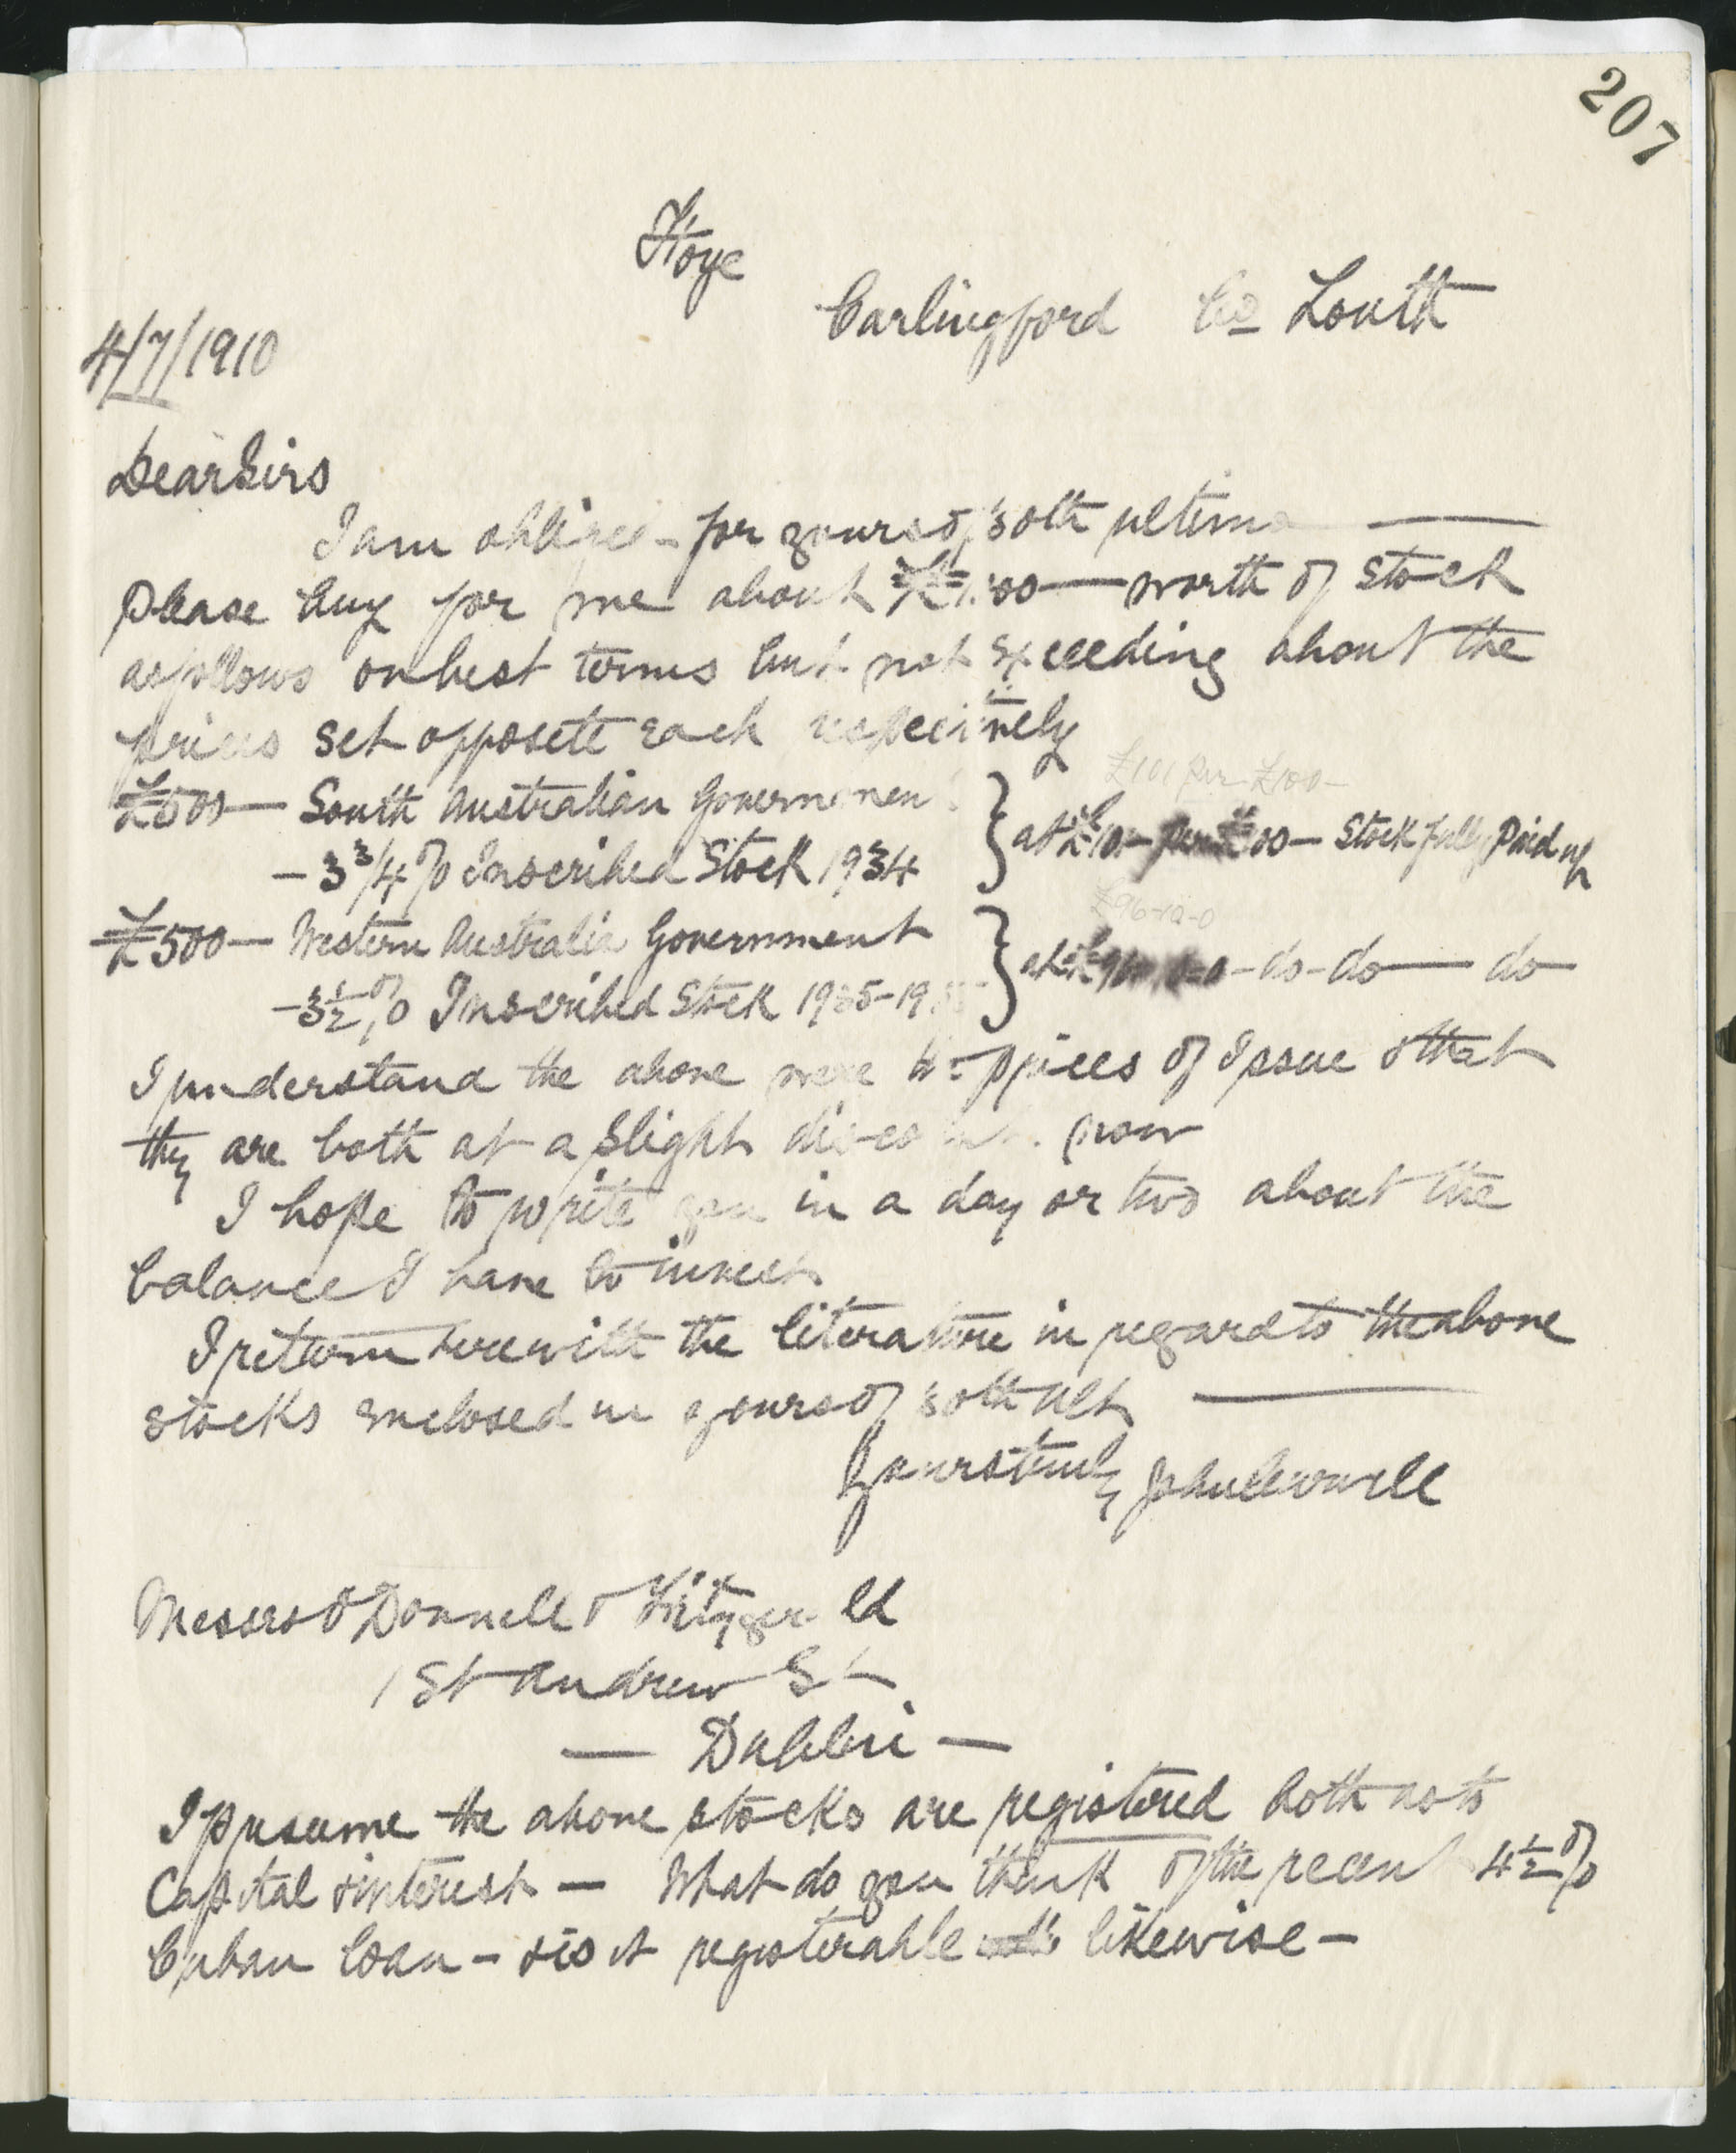 207
Carlingford Co Louth
4/7/1910
Dear Sirs
I am obliged - for yours of 30th ultimo —
Please buy for me about £1000 — worth of stock
as follows on best terms but not exceeding about the
prices set opposite each respectively
£101 per £100 -
£500 — South Australian Government } at £101 - per £100 - Stock fully Paid up
- 3 3/4 % Inscribed Stock 1934
£96-10-0
£500 — Western Australia Government } at £96 - do - do — do
- 3 1/2 % Inscribed Stock 1935-19
I understand the above were the prices of Issue & that
they are both at a slight discount now
I hope to write you in a day or two about the
balance I have to invest
I return herewith the literature in regard to the above
stocks enclosed in yours of 30th ult —
Yours truly
Messrs O'Donnell & Fitzgerald
1 St Andrew St
— Dublin —
I presume the above stocks are registered both as to
Capital & interest — What do you think of the recent 4 1/2 %
Cuban loan - & is it registerable likewise -